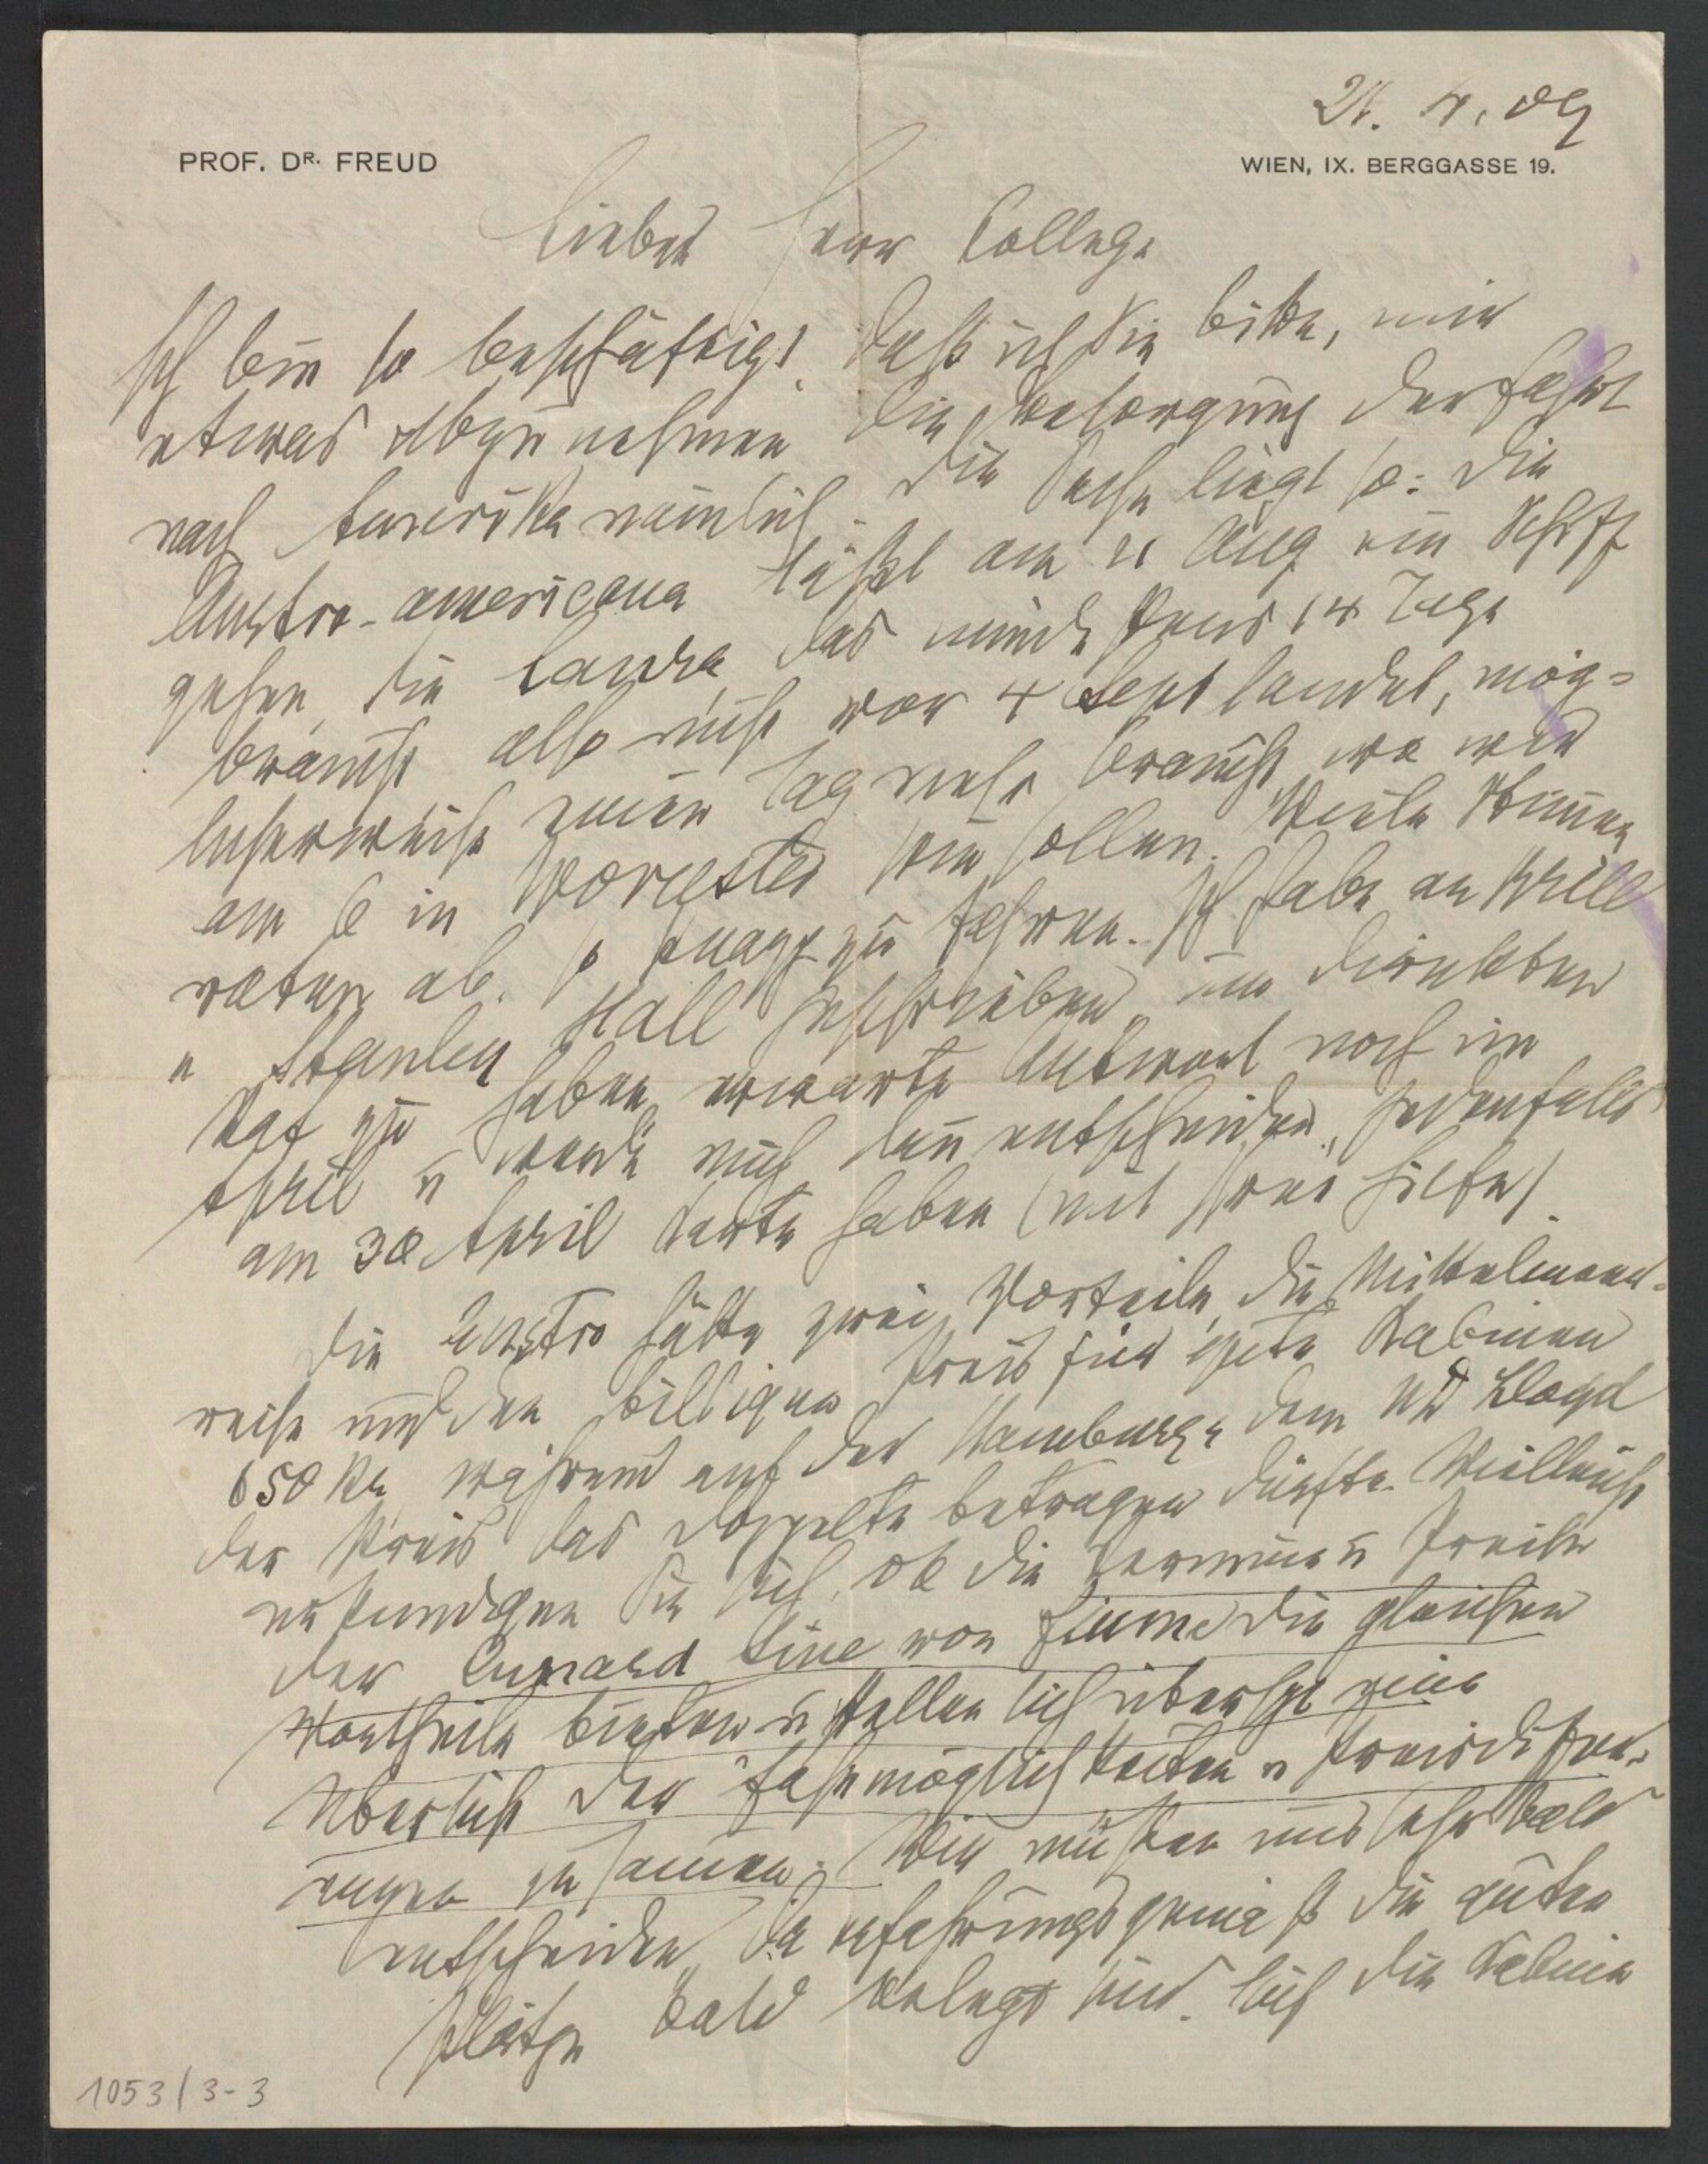 21. 4. 09
PROF. DR. FREUD
WIEN, IX. BERGGASSE 19.
Lieber Herr College
Ich bin so beschäftigt, daß ich Sie bitte, mir
etwas abzunehmen die Besorgung der Fahrt
nach Amerika nämlich. Die Sache liegt so: Die
Austro-americana läßt am 21 Aug ein Schiff
gehen, die Laura, das mindestens 14 Tage
braucht also nicht vor 4 Sept landet, mög-
licherweise einen Tag mehr braucht, wo wir
am 6 in Worcester sein sollen. Viele Stimmen
raten ab, so knapp zu fahren. Ich habe an Brill
u Stanley Hall geschrieben, um direkten
Rat zu haben, erwarte Antwort noch im
April u werde mich dann entscheiden, jedenfalls
am 30 April Karte haben (mit Ihrer Hilfe).
Die Austro hätte zwei Vorteile, die Mittelmeer-
reise und den billigen Preis für gute Kabinen
650 Kr, während auf der Hamburg u dem ND Lloyd
der Preis das doppelte betragen dürfte. Vielleicht
erkundigen Sie sich, ob die Termine u Preise
der Cunard Line von Fiume die gleichen
Vortheile bieten u stellen sich überhpt eine
Übersicht der Fahrmöglichkeiten u Preisdifferen-
zen zusammen. Wir müssen uns sehr bald
entscheiden, da erfahrungsgemäß die guten
Plätze bald belegt sind. Auch die Kabine
1053/3-3